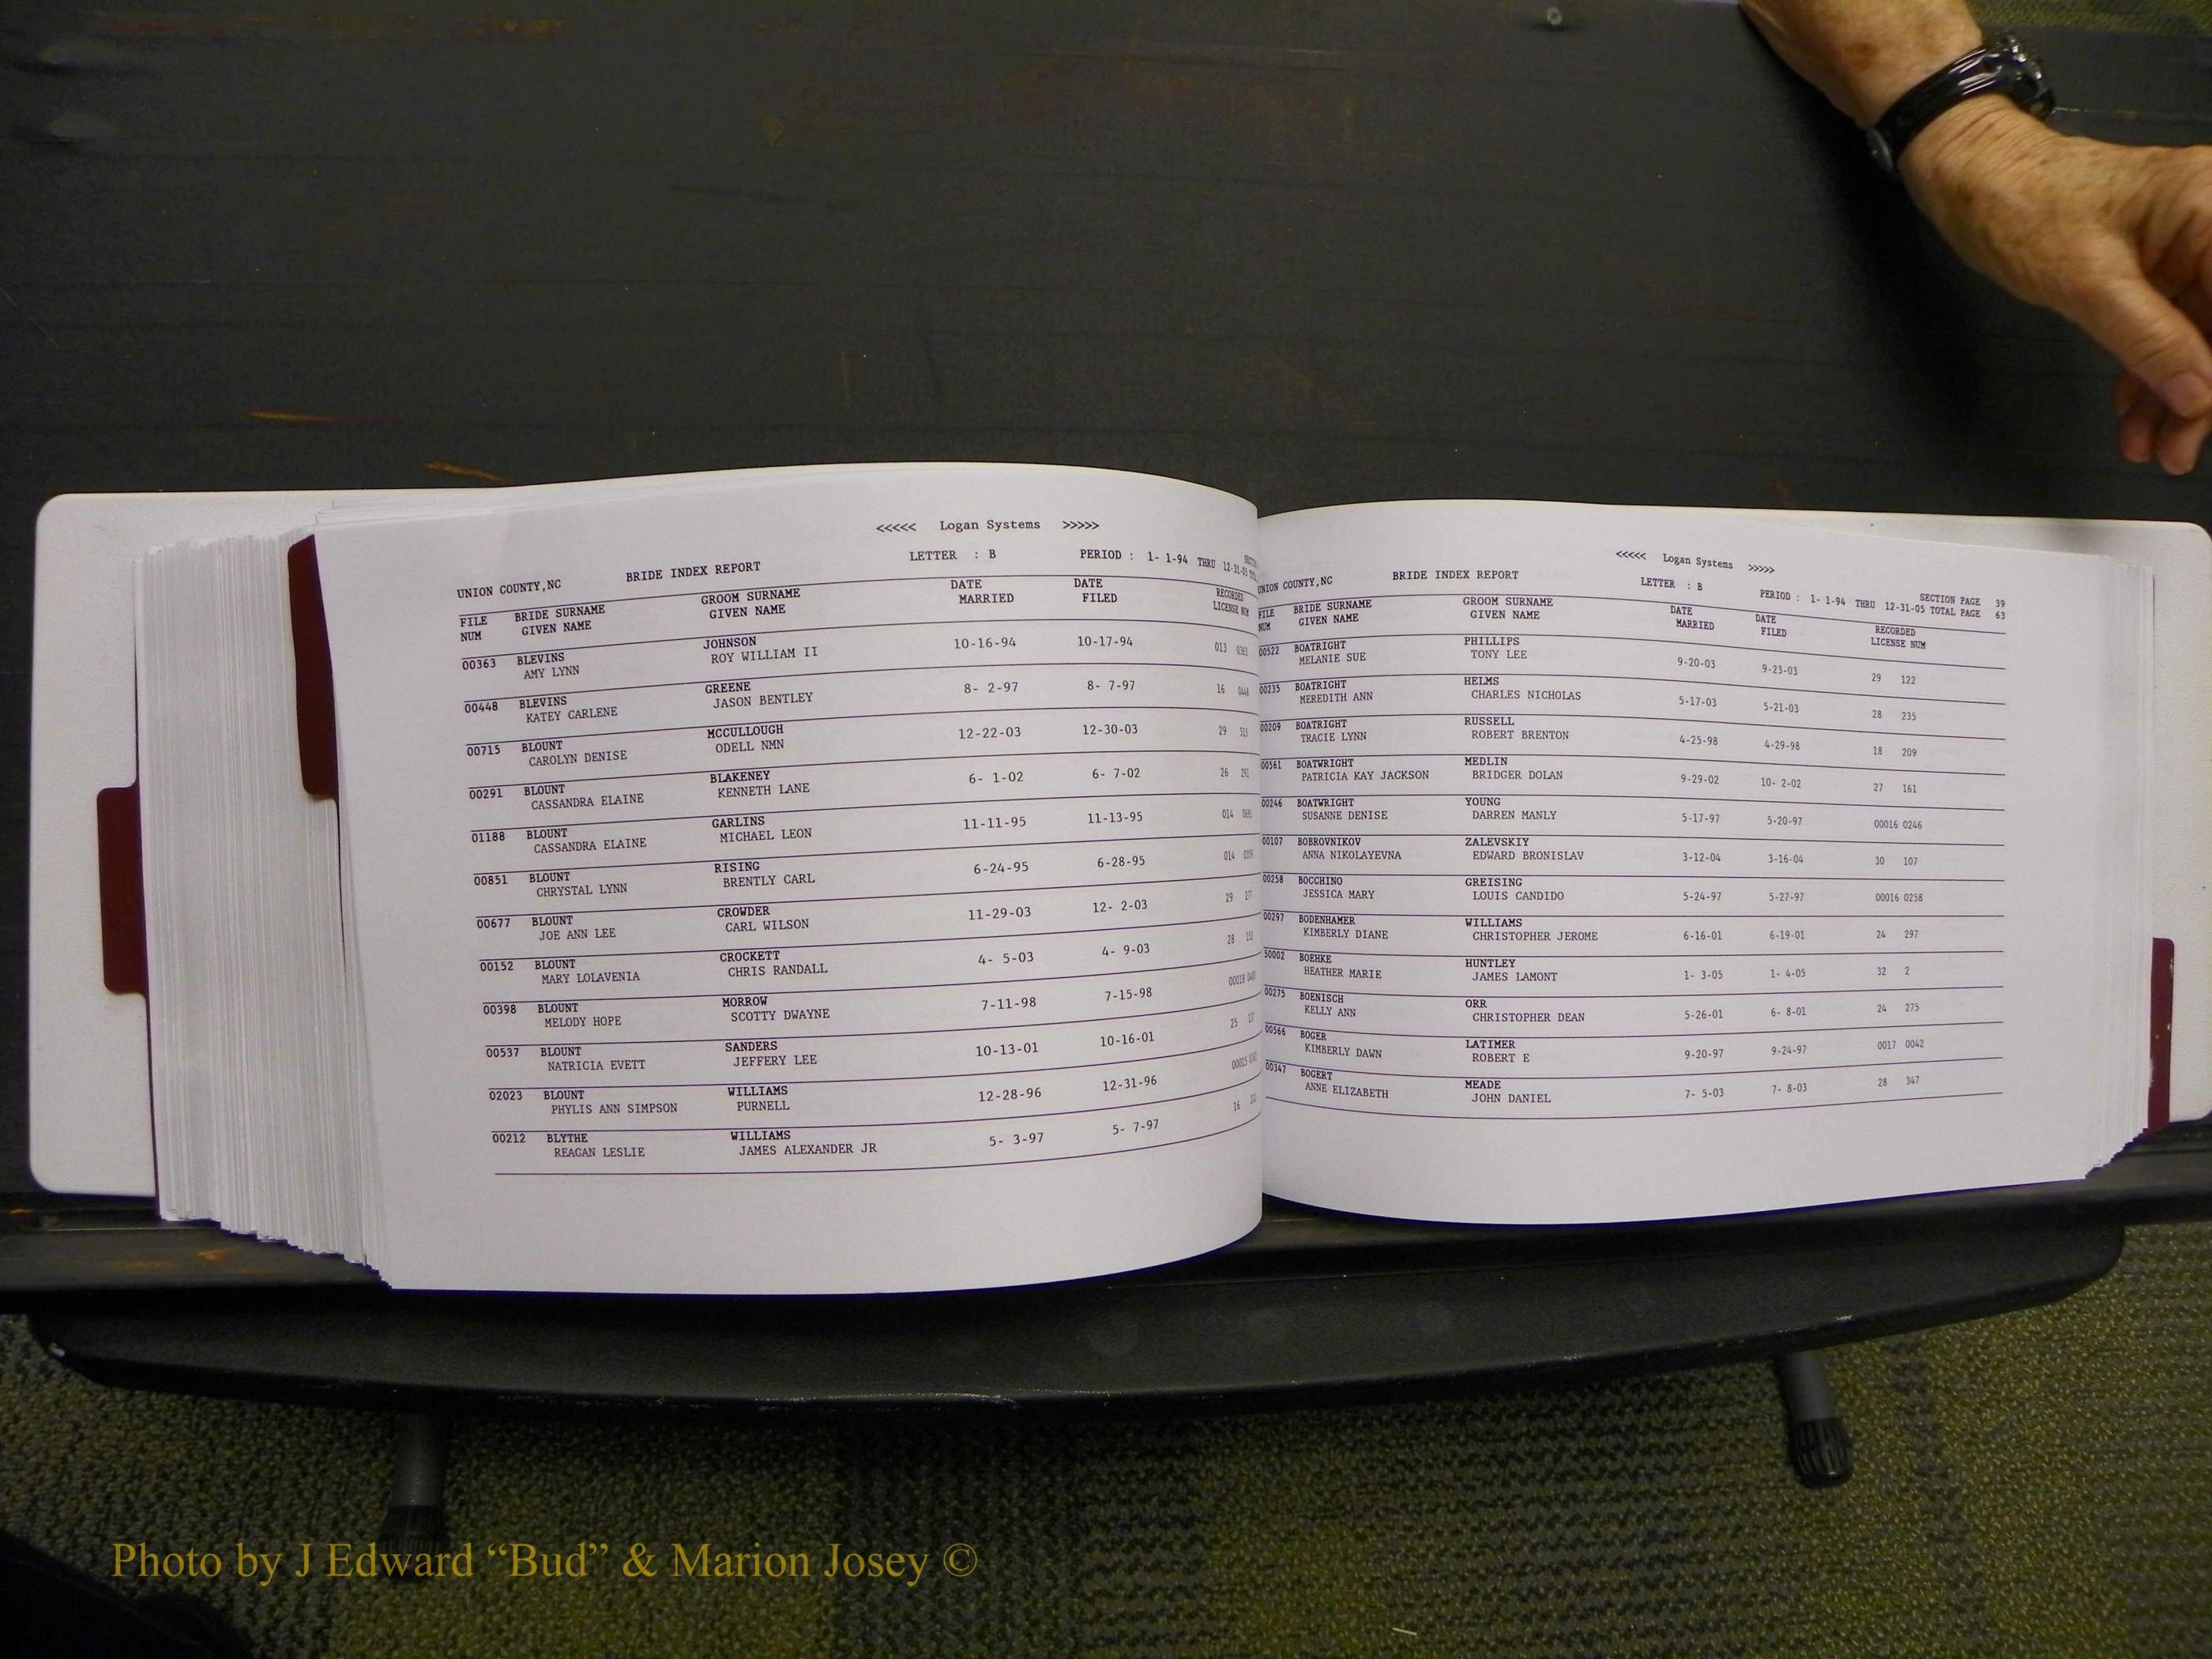 <<<<< Logan Systems >>>>>
UNION COUNTY,NC BRIDE INDEX REPORT LETTER : B PERIOD : 1- 1-94 THRU 12-31-05
FILE BRIDE SURNAME GROOM SURNAME DATE DATE RECORDED
NUM GIVEN NAME GIVEN NAME MARRIED FILED LICENSE NUM
00363 BLEVINS JOHNSON 10-16-94 10-17-94 013
AMY LYNN ROY WILLIAM II
00448 BLEVINS GREENE 8- 2-97 8- 7-97 16
KATEY CARLENE JASON BENTLEY
00715 BLOUNT MCCULLOUGH 12-22-03 12-30-03 29
CAROLYN DENISE ODELL NMN
00291 BLOUNT BLAKENEY 6- 1-02 6- 7-02 26
CASSANDRA ELAINE KENNETH LANE
01188 BLOUNT GARLINS 11-11-95 11-13-95 014
CASSANDRA ELAINE MICHAEL LEON
00851 BLOUNT RISING 6-24-95 6-28-95 014
CHRYSTAL LYNN BRENTLY CARL
00677 BLOUNT CROWDER 11-29-03 12- 2-03 29
JOE ANN LEE CARL WILSON
00152 BLOUNT CROCKETT 4- 5-03 4- 9-03 28
MARY LOLAVENIA CHRIS RANDALL
00398 BLOUNT MORROW 7-11-98 7-15-98 00018
MELODY HOPE SCOTTY DWAYNE
00537 BLOUNT SANDERS 10-13-01 10-16-01 25
NATRICIA EVETT JEFFERY LEE
02023 BLOUNT WILLIAMS 12-28-96 12-31-96 00015
PHYLIS ANN SIMPSON PURNELL
00212 BLYTHE WILLIAMS 5- 3-97 5- 7-97 16
REAGAN LESLIE JAMES ALEXANDER JR
<<<<< Logan Systems >>>>>
UNION COUNTY,NC BRIDE INDEX REPORT LETTER : B SECTION PAGE 39
PERIOD : 1- 1-94 THRU 12-31-05 TOTAL PAGE 63
FILE BRIDE SURNAME GROOM SURNAME DATE DATE RECORDED
NUM GIVEN NAME GIVEN NAME MARRIED FILED LICENSE NUM
00522 BOATRIGHT PHILLIPS 9-20-03 9-23-03 29 122
MELANIE SUE TONY LEE
00235 BOATRIGHT HELMS 5-17-03 5-21-03 28 235
MEREDITH ANN CHARLES NICHOLAS
00209 BOATRIGHT RUSSELL 4-25-98 4-29-98 18 209
TRACIE LYNN ROBERT BRENTON
00561 BOATWRIGHT MEDLIN 9-29-02 10- 2-02 27 161
PATRICIA KAY JACKSON BRIDGER DOLAN
00246 BOATWRIGHT YOUNG 5-17-97 5-20-97 00016 0246
SUSANNE DENISE DARREN MANLY
00107 BOBROVNIKOV ZALEVSKIY 3-12-04 3-16-04 30 107
ANNA NIKOLAYEVNA EDWARD BRONISLAV
00258 BOCCHINO GREISING 5-24-97 5-27-97 00016 0258
JESSICA MARY LOUIS CANDIDO
00297 BODENHAMER WILLIAMS 6-16-01 6-19-01 24 297
KIMBERLY DIANE CHRISTOPHER JEROME
50002 BOEHKE HUNTLEY 1- 3-05 1- 4-05 32 2
HEATHER MARIE JAMES LAMONT
00275 BOENISCH ORR 5-26-01 6- 8-01 24 275
KELLY ANN CHRISTOPHER DEAN
00566 BOGER LATIMER 9-20-97 9-24-97 0017 0042
KIMBERLY DAWN ROBERT E
00347 BOGERT MEADE 7- 5-03 7- 8-03 28 347
ANNE ELIZABETH JOHN DANIEL
Photo by J Edward “Bud” & Marion Josey ©